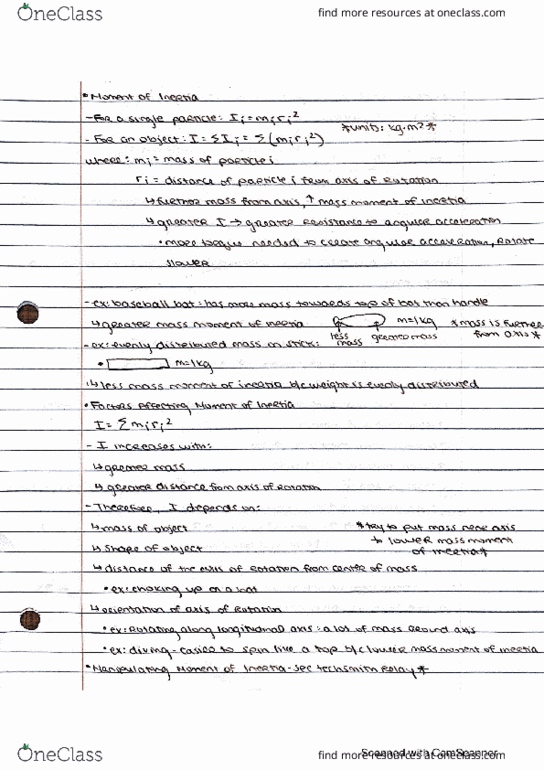 OneClass
find more resources at oneclass.com
• Moment of Inertia
- For a single particle: Iᵢ = mᵢrᵢ²
*unit: kg·m²*
- For an object: I = ΣIᵢ = Σ(mᵢrᵢ²)
where: mᵢ = mass of particle i
rᵢ = distance of particle i from axis of rotation
↳ further mass from axis, ↑ mass moment of inertia
↳ greater I → greater resistance to angular acceleration
• more torque needed to create angular acceleration, rotate
slower
- ex: baseball bat: has more mass towards top of bat than handle
↳ greater mass moment of inertia
m=1kg
*mass is further
from axis*
less
mass
greater mass
- ex: evenly distributed mass on stick:
• m=1kg
↳ less mass moment of inertia b/c weight is evenly distributed
• Factors Affecting Moment of Inertia
I = Σmᵢrᵢ²
- I increases with:
↳ greater mass
↳ greater distance from axis of rotation
- Therefore, I depends on:
↳ mass of object
*try to put mass near axis
to lower mass moment
of inertia*
↳ shape of object
↳ distance of the axis of rotation from centre of mass
• ex: choking up on a bat
↳ orientation of axis of rotation
• ex: rotating along longitudinal axis: a lot of mass around axis
• ex: diving - easier to spin like a top b/c lower mass moment of inertia
• Manipulating Moment of Inertia - see techsmith Relay *
OneClass
find more resources at oneclass.com
Scanned with CamScanner